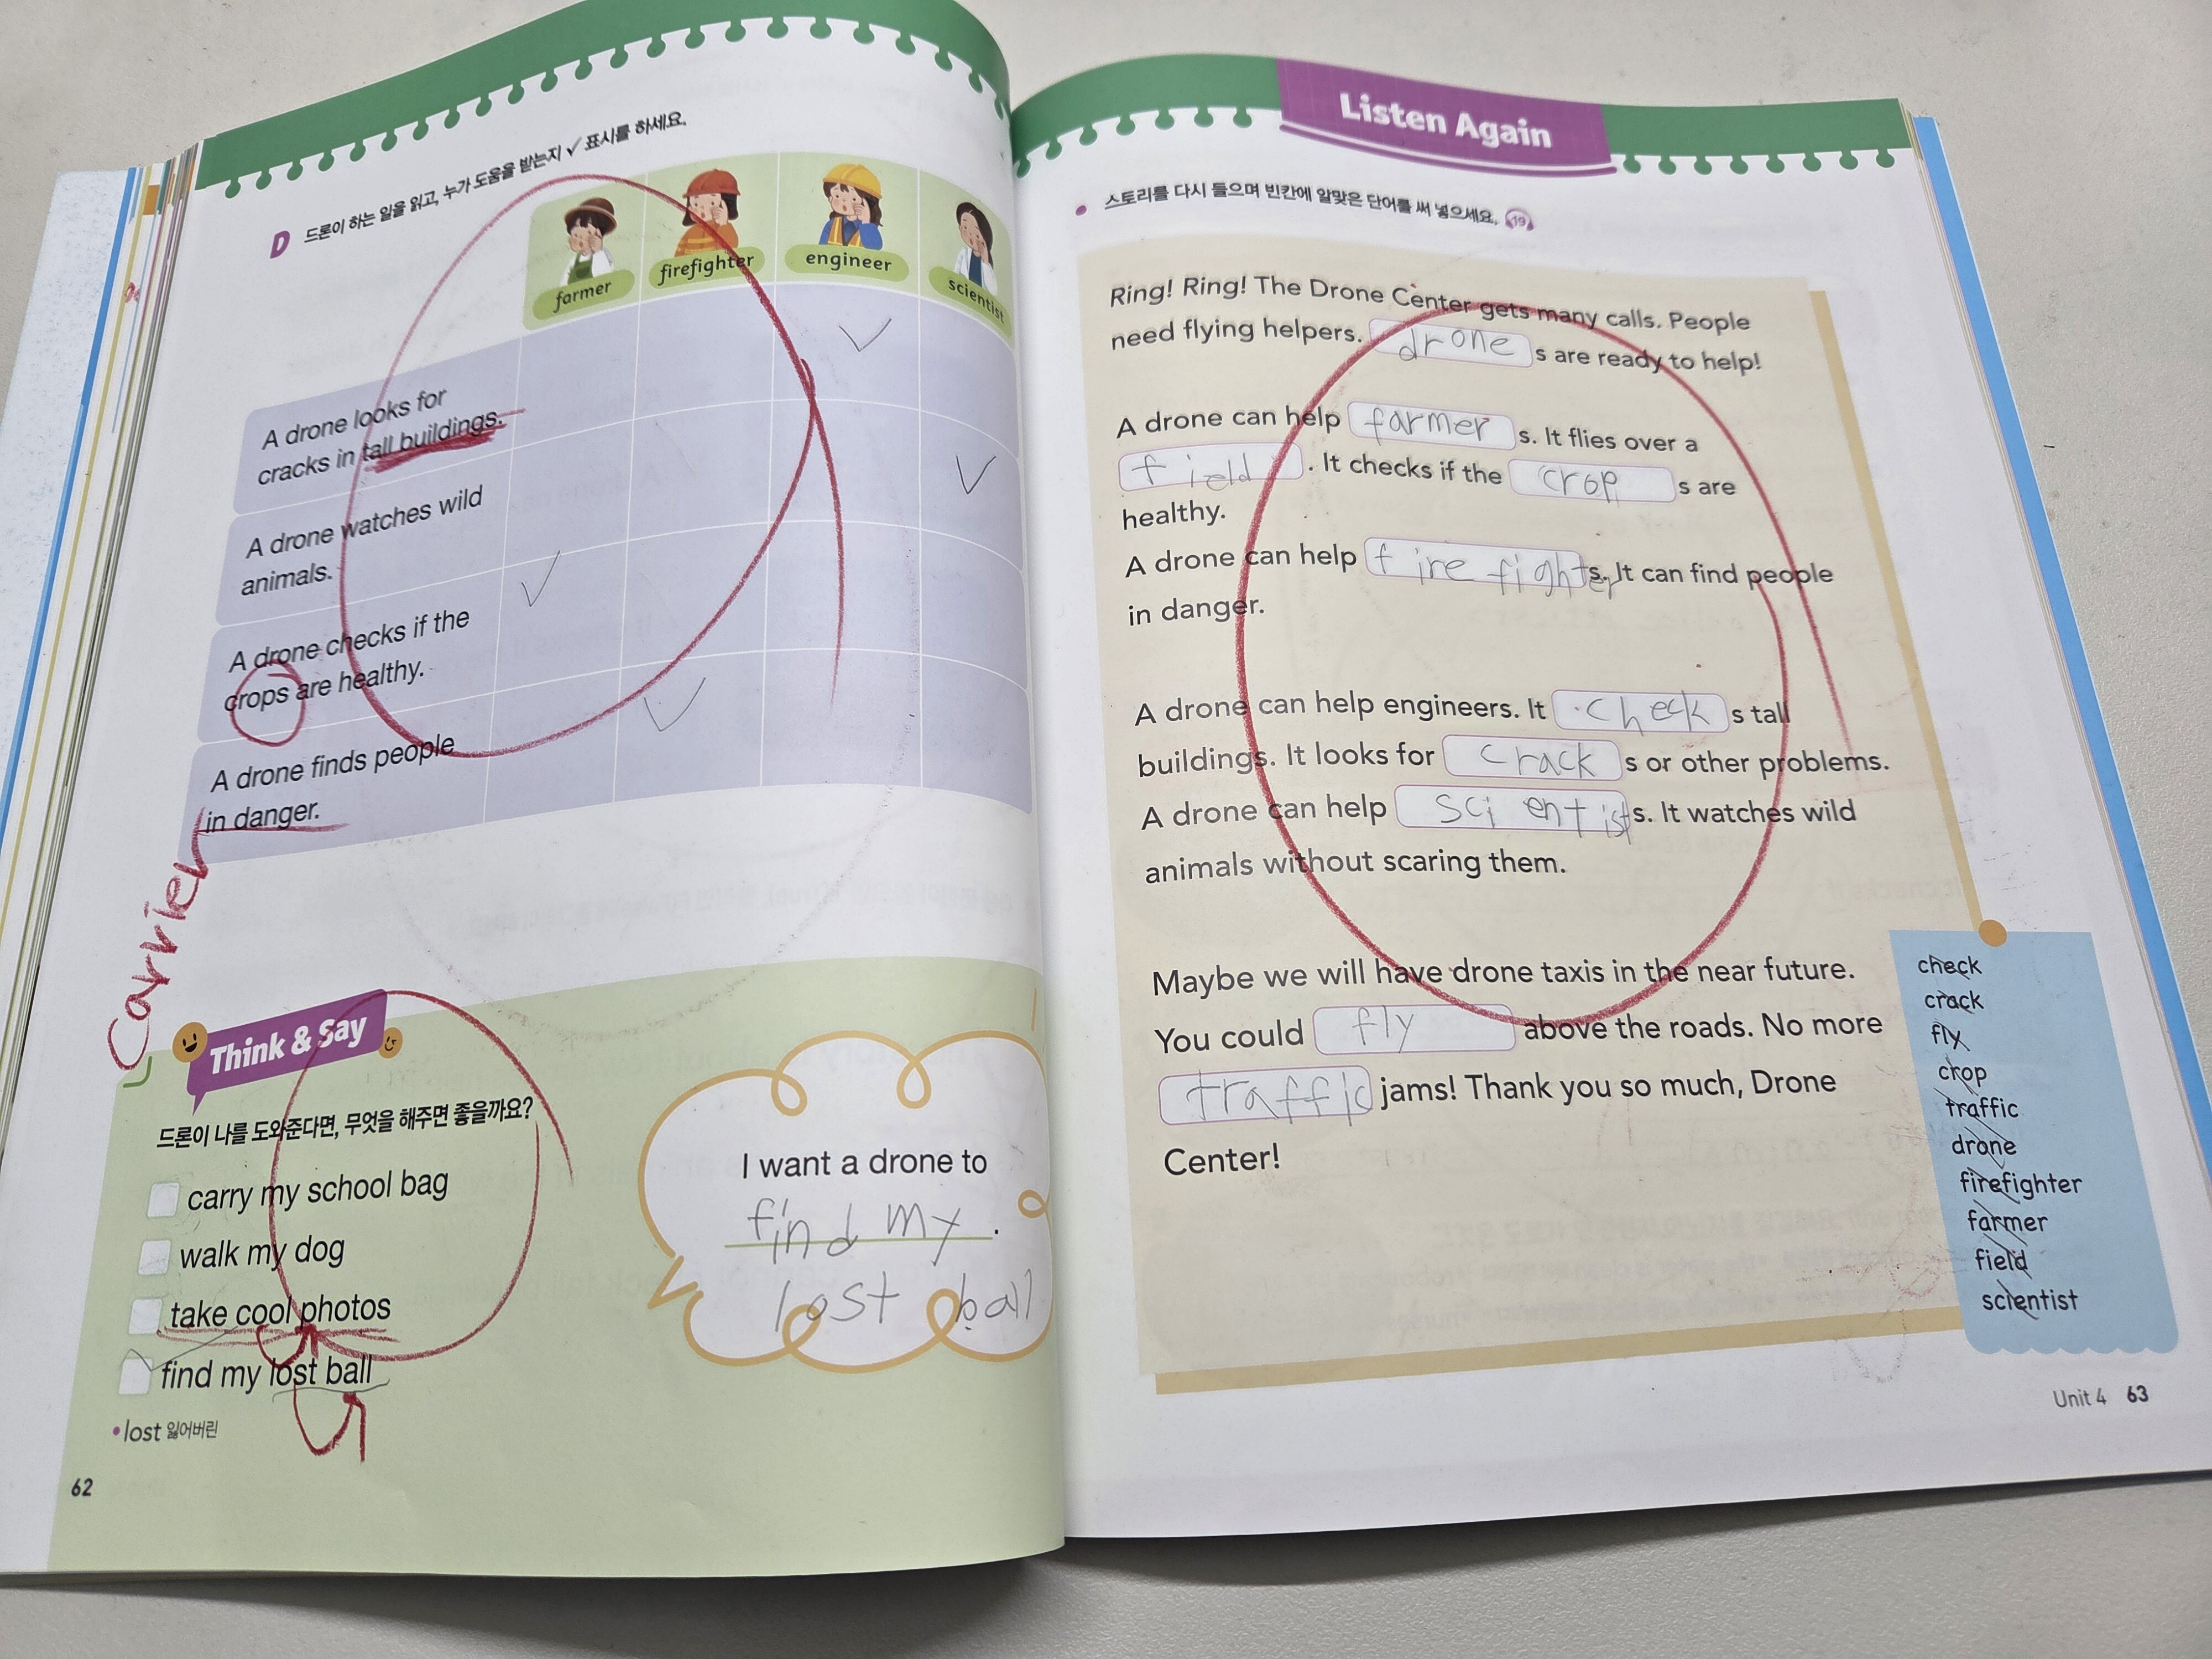 D 드론이 하는 일을 읽고, 누가 도움을 받는지 ✓ 표시를 하세요.
farmer firefighter engineer scientist
A drone looks for
cracks in tall buildings.
A drone watches wild
animals.
A drone checks if the
crops are healthy.
A drone finds people
in danger.
Think & Say
드론이 나를 도와준다면, 무엇을 해주면 좋을까요?
carry my school bag
walk my dog
take cool photos
find my lost ball
• lost 잃어버린
I want a drone to
find my .
lost ball
62
Listen Again
• 스토리를 다시 들으며 빈칸에 알맞은 단어를 써 넣으세요. 19
Ring! Ring! The Drone Center gets many calls. People
need flying helpers. drone s are ready to help!
A drone can help farmer s. It flies over a
field . It checks if the crop s are
healthy.
A drone can help firefighter s. It can find people
in danger.
A drone can help engineers. It check s tall
buildings. It looks for crack s or other problems.
A drone can help scientist s. It watches wild
animals without scaring them.
Maybe we will have drone taxis in the near future.
You could fly above the roads. No more
traffic jams! Thank you so much, Drone
Center!
check
crack
fly
crop
traffic
drone
firefighter
farmer
field
scientist
Unit 4 63